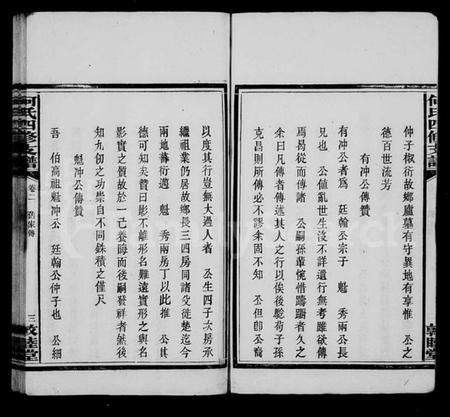 何氏四修支譜
敦睦堂
仲子椒衍故鄉廬墓有守異地有享惟　公之
德百世流芳
有冲公傳贊
有冲公者爲　廷翰公宗子　魁　秀兩公長
兄也　公值亂世生沒不詳遺行無考雖欲傳
焉曷從而傳諸　公嗣孫華惟惜躊躇者久之
余曰凡傳者傳述其人之行以俟後駝荀子孫
克昌則所傳必不謬余固不知　公但卽　公裔
以度其行豈無大過人者　公生四子次房承
繼祖業仍居故鄉長三四房同諸叟徒楚迄今
兩地蕃衍遡　魁　秀兩房丁以此推　公其
德可知矣贊曰影不離形名難遠實形之與名
影實之質故於一己養頤而後嗣發祥者然後
知九仞之功崇自不同銖積之僅尺
魁冲公傳贊
吾　伯高祖魁冲公　廷翰公仲子也　公綱
何氏四修支譜
卷二
舊家傳
三
敦睦堂